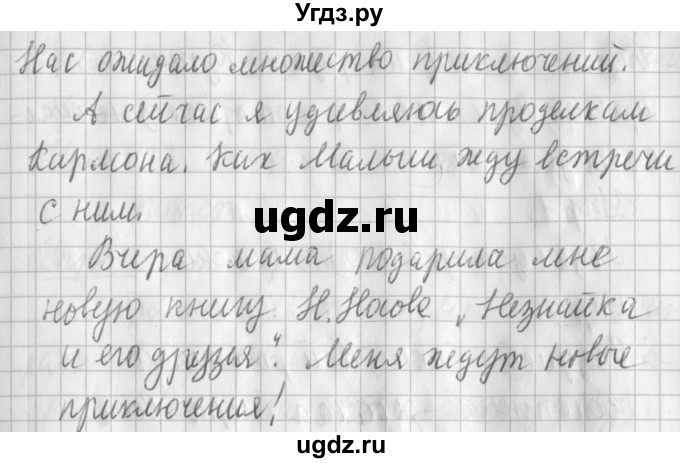 Угдз.ру
Нас ожидало множество приключений.
А сейчас я удивляюсь проделкам
Карлсона. Как Малыш, жду встречи
с ним.
ugdz.ru
Вчера мама подарила мне
новую книгу Н. Носова „Незнайка
и его друзья". Меня ждут новые
приключения!
ugdz.ru